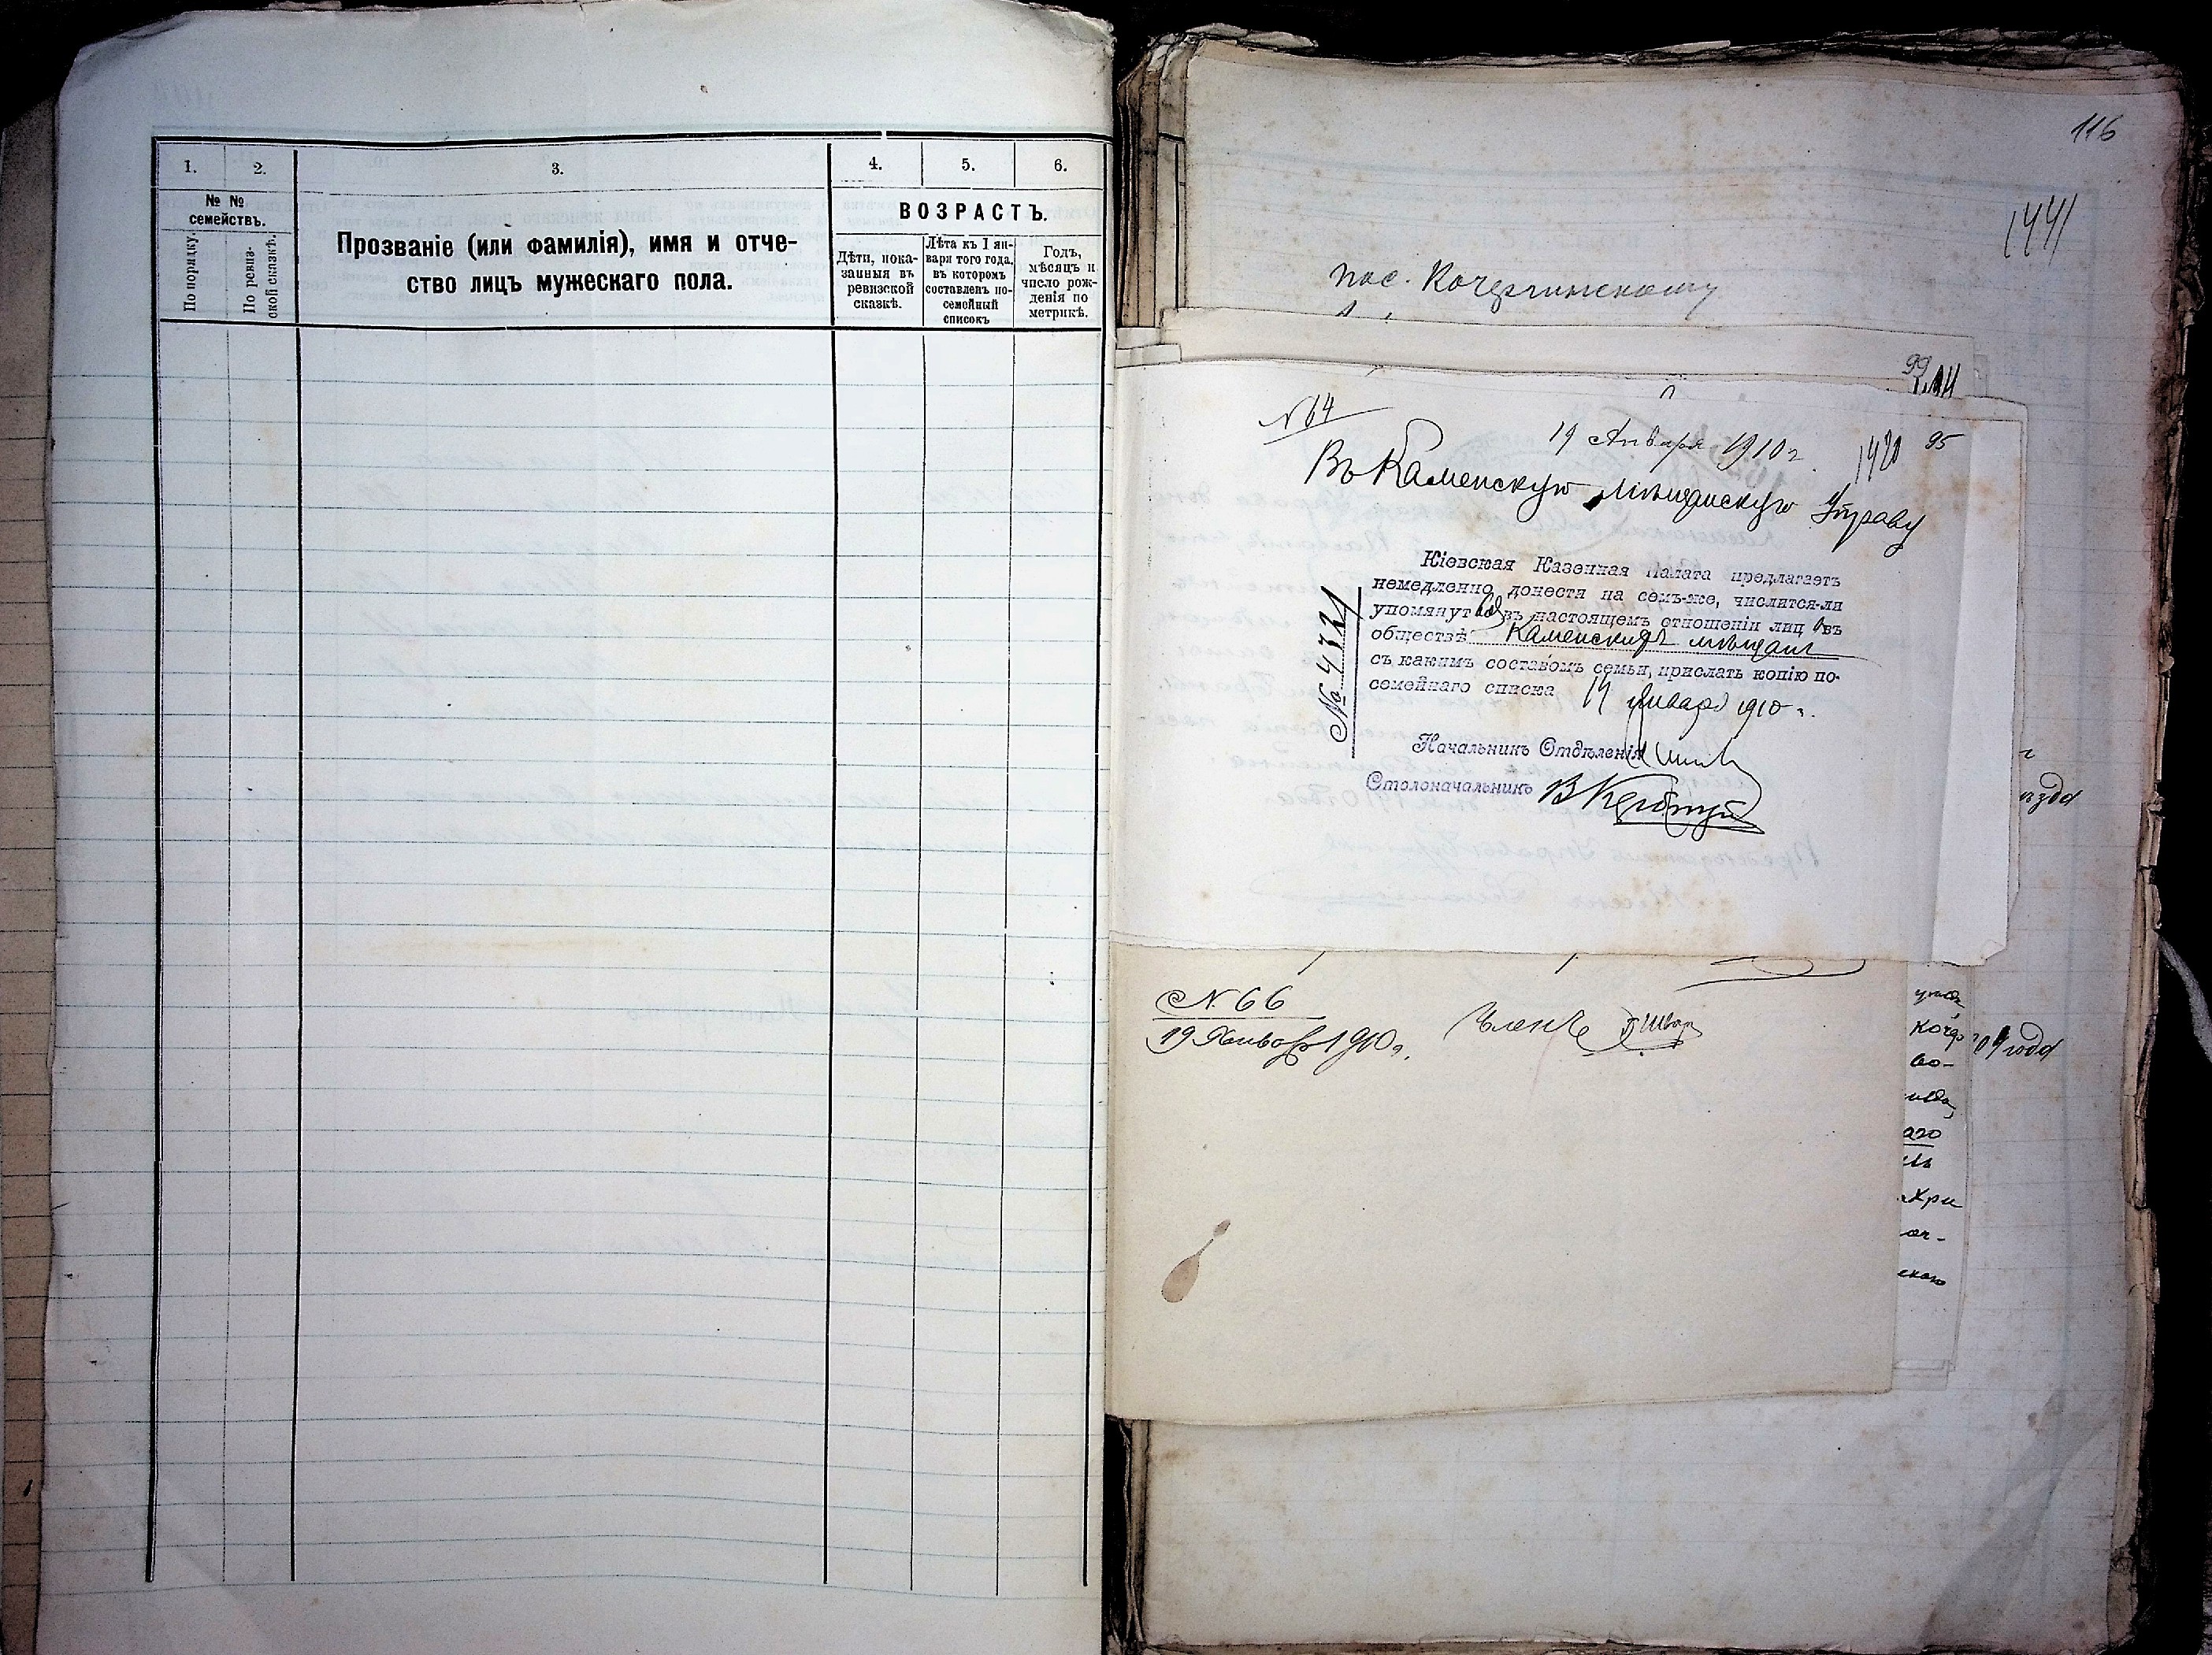 1. 2. 3. 4. 5. 6.
№ № семействъ.
По порядку.
По ревизской сказкѣ.
Прозваніе (или фамилія), имя и отче-
ство лицъ мужескаго пола.
ВОЗРАСТЪ.
Дѣти, пока-
занныя въ
ревизской
сказкѣ.
Лѣта къ 1 ян-
варя того года,
въ которомъ
составленъ по-
семейный
списокъ
Годъ,
мѣсяцъ и
число рож-
денія по
метрикѣ.
116
1441
пос. Кочергинскому
99
№ 64
19 Января 1910 г.
1420 95
Въ Каменскую Мѣщанскую Управу
Кіевская Казенная Палата предлагаетъ
немедленно донести на семъ-же, числится-ли
упомянут въ настоящемъ отношеніи лиц въ
обществѣ Каменскихъ мѣщанъ
съ какимъ составомъ семьи, прислать копію по-
семейнаго списка 14 января 1910 г.
Начальникъ Отдѣленія
Столоначальникъ
№ 4721
№ 66
19 Января 1910 г.
Членъ
кочер
во-
аго
кри
скаго
года